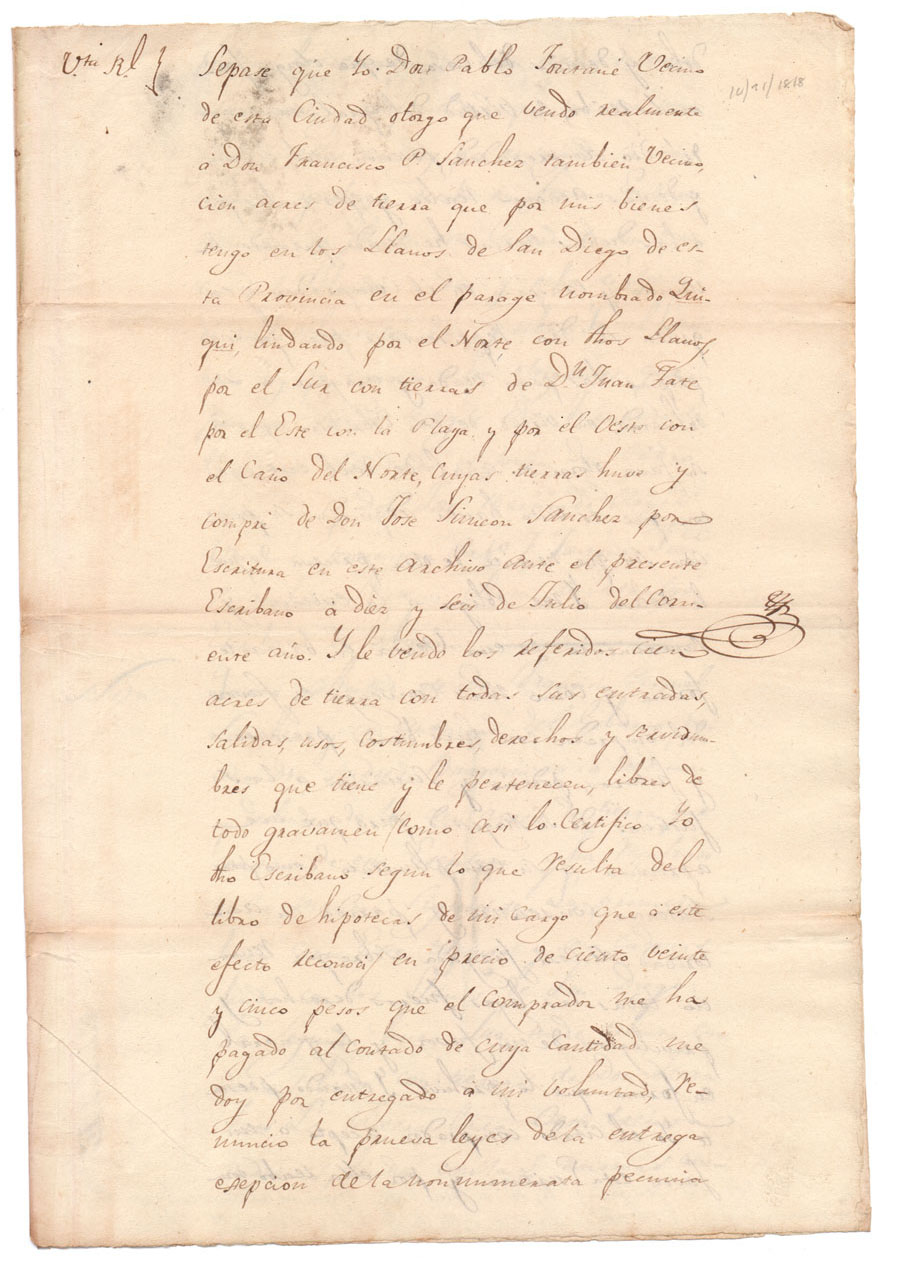 Vta Rl
10/21/1818
Sepase que Yo Don Pablo Fontané Vecino
de esta Ciudad otorgo que vendo realmente
à Don Francisco P. Sanchez tambien Vecino,
cien acres de tierra que por mis bienes
tengo en los Llanos de San Diego de es-
ta Provincia en el parage nombrado Qui-
qui, lindando por el Norte con dhos Llanos,
por el Sur con tierras de Dn Juan Fate
por el Este con la Playa y por el Oeste con
el Caño del Norte, cuyas tierras huve y
compré de Don Jose Simeon Sanchez por
Escritura en este Archivo ante el presente
Escribano à diez y seis de Julio del Corri-
ente año. Y le vendo los referidos Cien
acres de tierra con todas sus entradas,
salidas, usos, costumbres, derechos y servidum-
bres que tiene y le pertenecen, libres de
todo gravamen (como asi lo Certifico Yo
dho Escribano segun lo que resulta del
libro de hipotecas de mi Cargo que à este
efecto reconoci) en precio de ciento veinte
y cinco pesos que el Comprador me ha
pagado al contado de cuya Cantidad me
doy por entregado à mi voluntad, re-
nuncio la prueva leyes de la entrega
esepcion de la non numerata pecunia